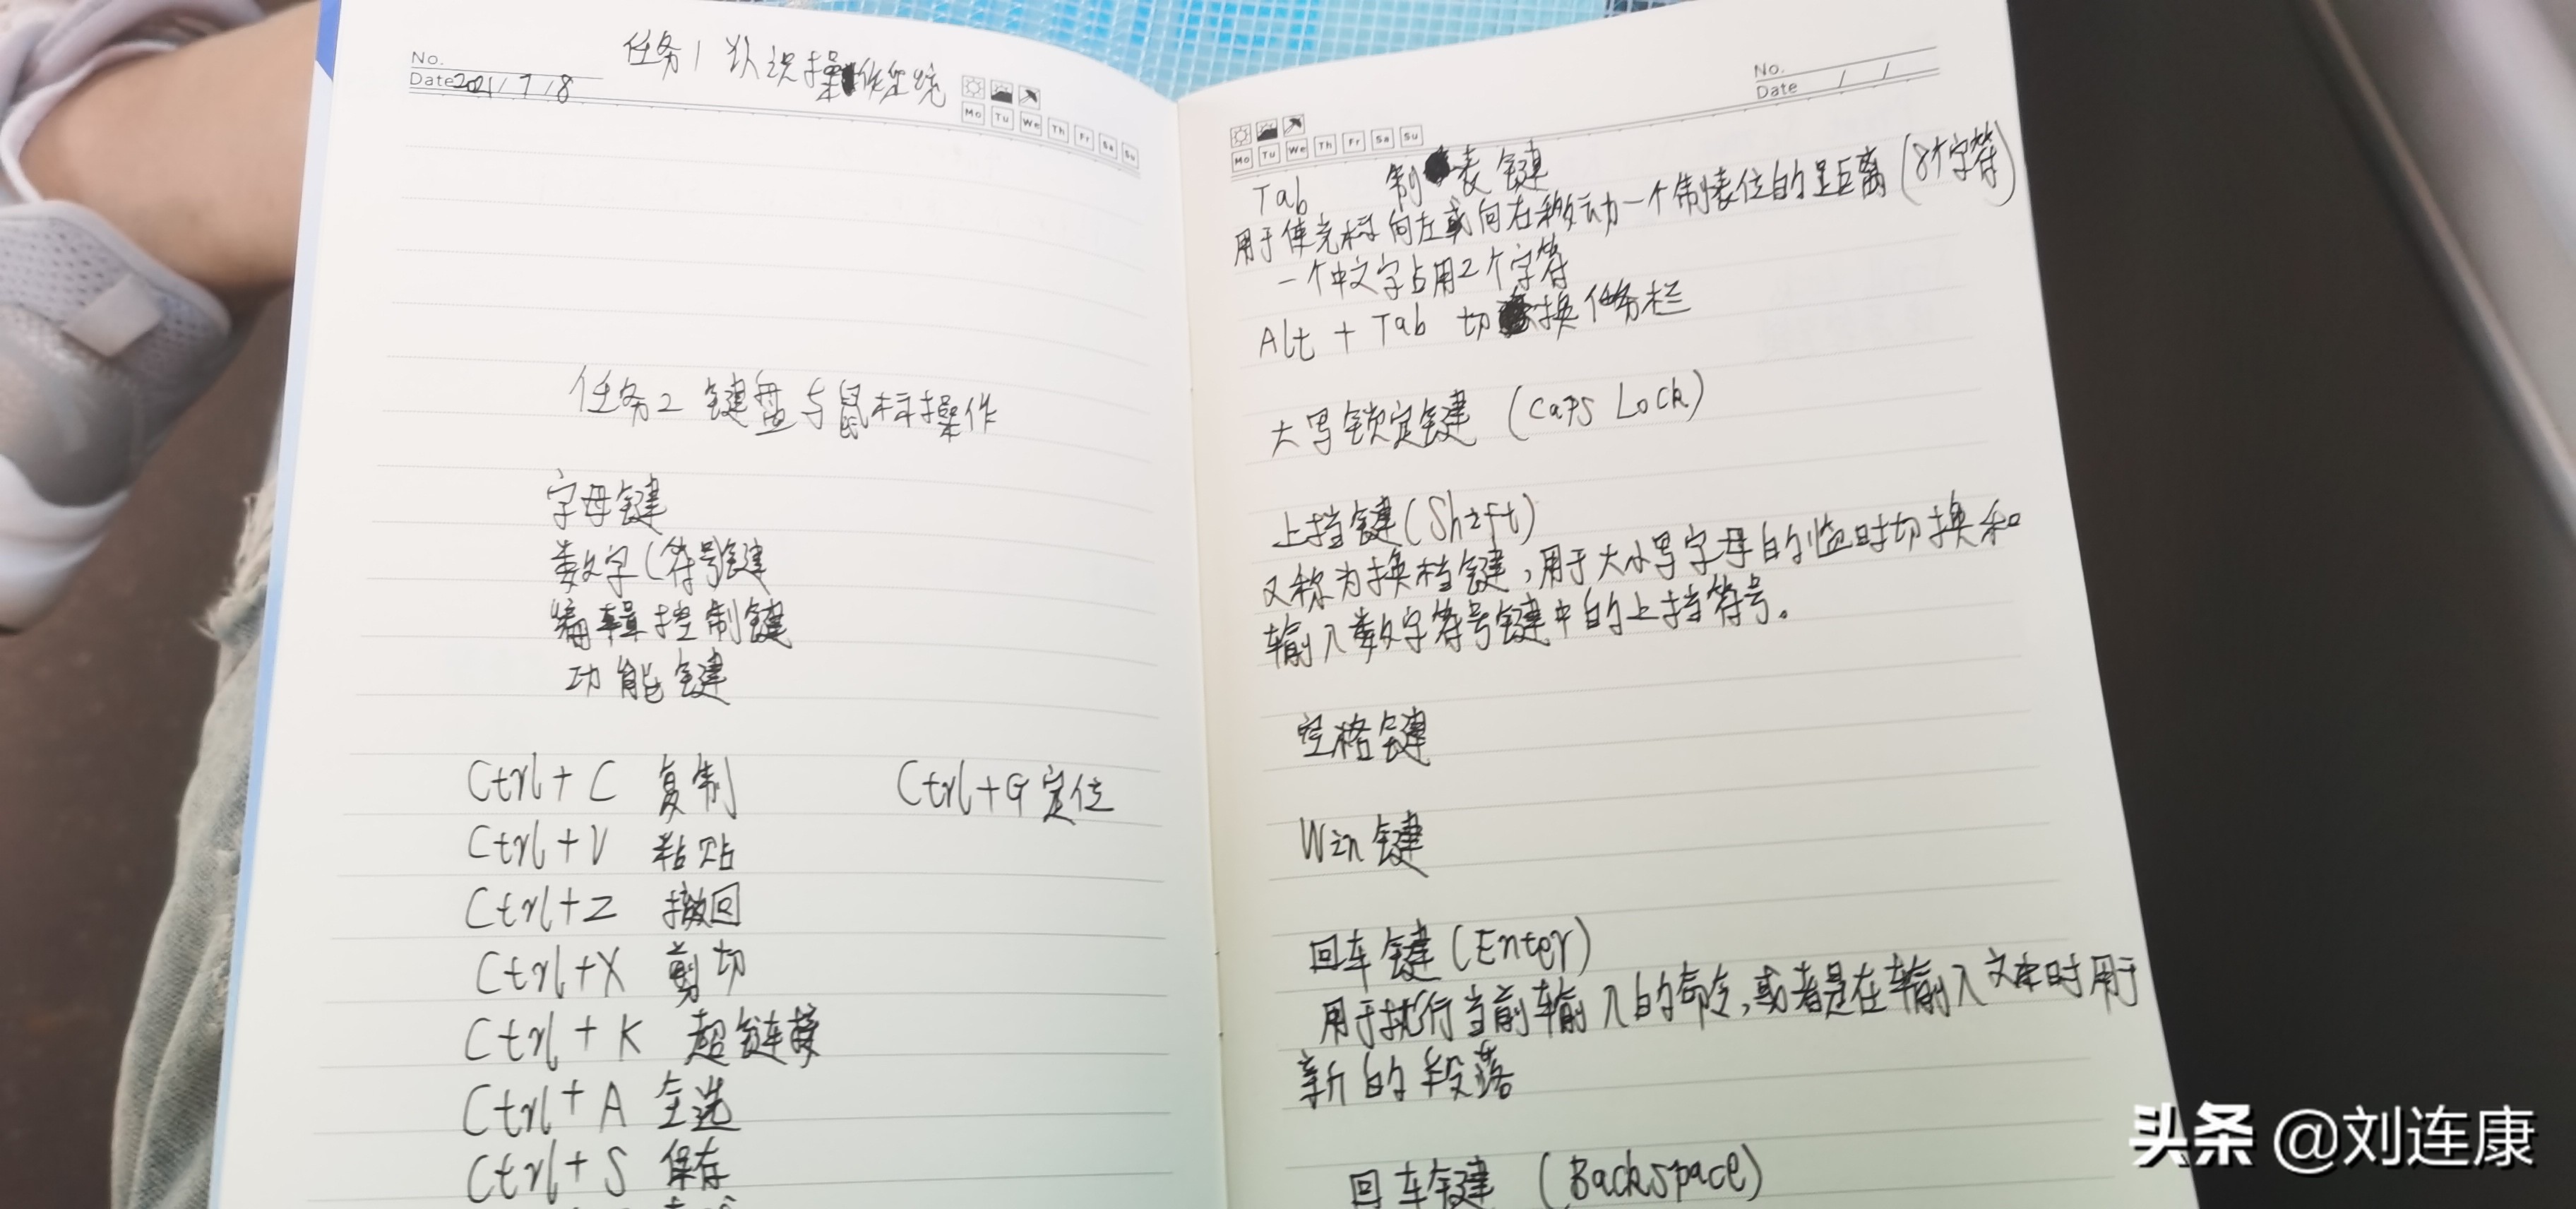 No.
Date 2021/7/8
任务1 认识操作系统
Mo Tu We Th Fr Sa Su
任务2 键盘与鼠标操作
字母键
数字(符号)键
编辑控制键
功能键
Ctrl+C 复制 Ctrl+G 定位
Ctrl+V 粘贴
Ctrl+Z 撤回
Ctrl+X 剪切
Ctrl+K 超链接
Ctrl+A 全选
Ctrl+S 保存
No.
Date / /
Mo Tu We Th Fr Sa Su
Tab 制表键
用于使光标向左或向右移动一个制表位的距离(8个字符)
一个中文字占用2个字符
Alt + Tab 切换任务栏
大写锁定键 (Caps Lock)
上挡键(Shift)
又称为换档键,用于大小写字母的临时切换和
输入数字符号键中的上挡符号。
空格键
Win键
回车键(Enter)
用于执行当前输入的命令,或者是在输入文本时用于
新的段落
回车键 (Backspace)
头条 @刘连康